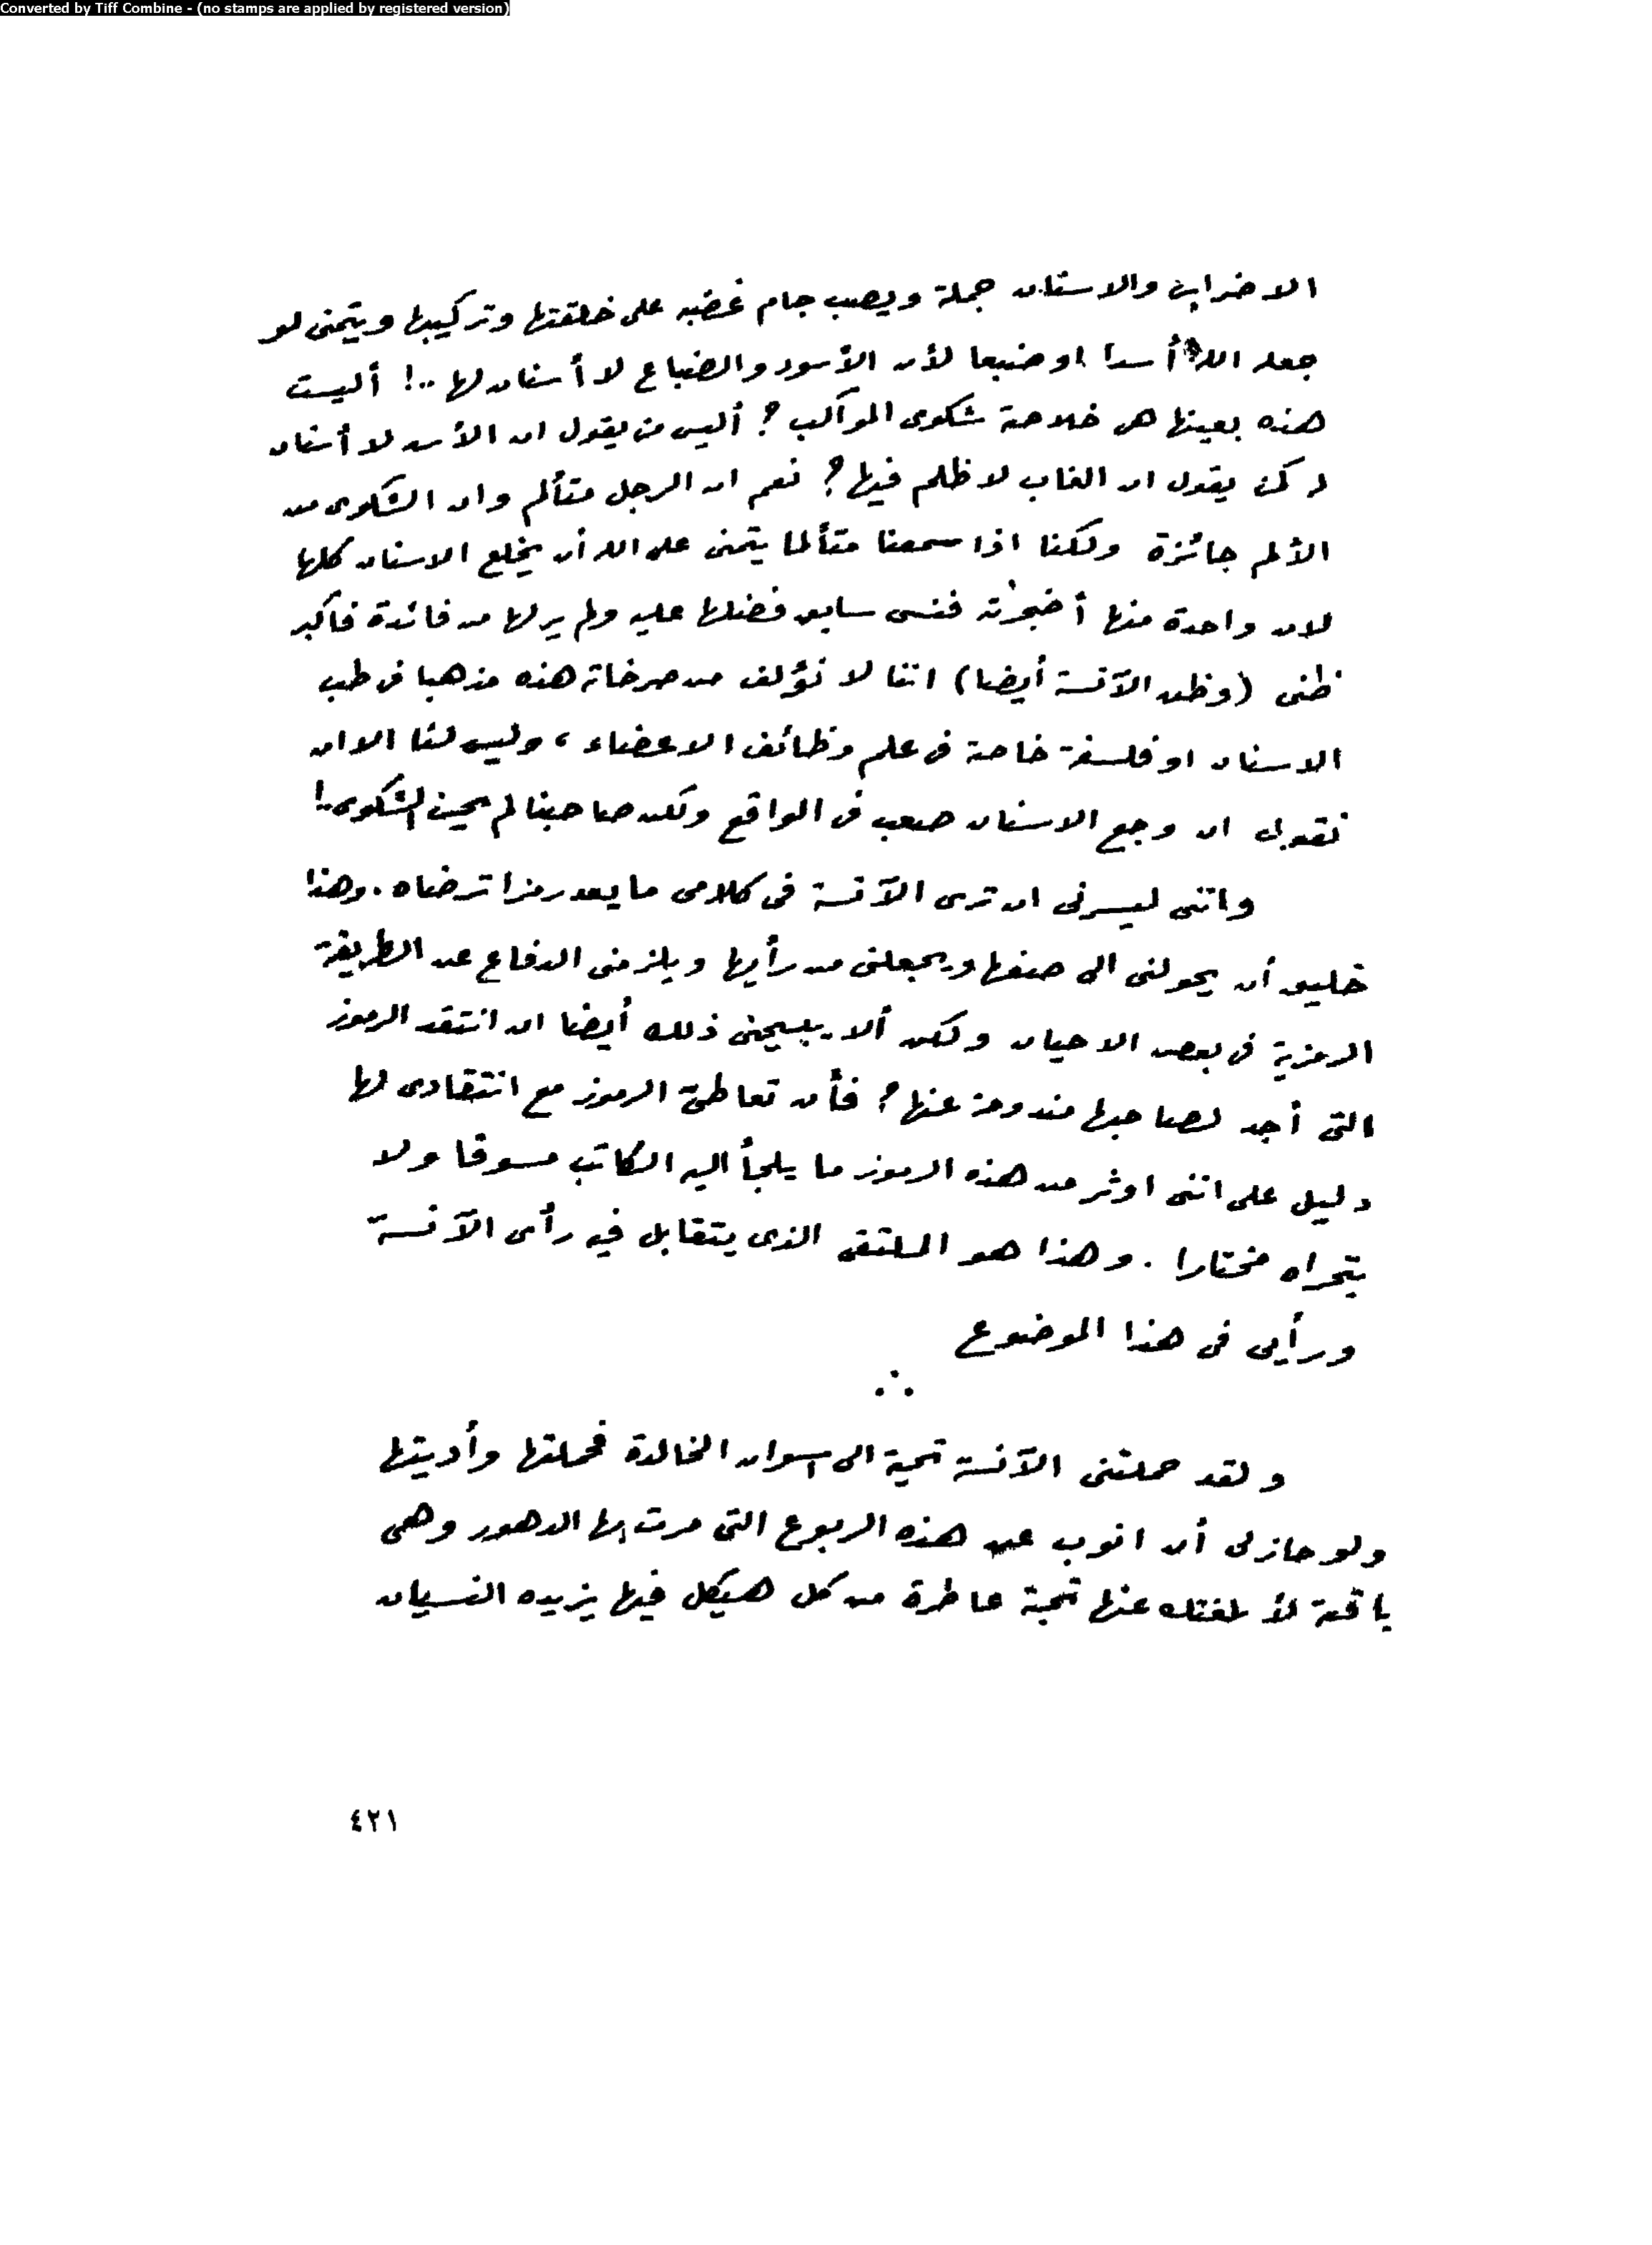 Converted by Tiff Combine - (no stamps are applied by registered version)
الاضراس والاسنان جملة ويصب جام غضبه على خلقتها وتركيبها ويتمنى لو
جعله الله أسدا او ضبعا لأن الأسود والضباع لا أسنان لها ..! أليست
هذه بعينها هى خلاصة شكوى المواكب ؟ أليس من يقول ان الأسد لا أسنان
له كمن يقول ان الغاب لا ظلم فيها ؟ نعم ان الرجل متألم وان الشكوى من
الألم جائزة ولكنا اذا سمعنا متألما يتمنى على الله أن يخلع الاسنان كلها
لان واحدة منها أضجرته فنسى سابق فضلها عليه ولم ير لها من فائدة فأكبر
ظنى (وظن الآنسة أيضا) اننا لا نؤلف من صرخاته هذه مذهبا فى طب
الاسنان او فلسفة خاصة فى علم وظائف الاعضاء ، وليس لنا الا ان
نقول ان وجع الاسنان صعب فى الواقع ولكن صاحبنا لم يحسن الشكوى..!
واننى ليسرنى ان ترى الآنسة فى كلامى ما يعد رمزا ترضاه . وهذا
خليق أن يحولنى الى صفها ويجعلنى من رأيها ويلزمنى الدفاع عن الطريقة
الرمزية فى بعض الاحيان ولكن ألا يبيحنى ذلك أيضا ان انتقد الرموز
التى أجد لصاحبها مندوحة عنها ؟ فأن تعاطىّ الرموز مع انتقادى لها
دليل على اننى اوثر من هذه الرموز ما يلجأ اليه الكاتب مسوقا ولا
يتحراه مختارا . وهذا هو الملتقى الذى يتقابل فيه رأى الآنسة
ورأيى فى هذا الموضوع
∴
ولقد حملتنى الآنسة تحية الى اسوان الخالدة فحملتها وأديتها
ولو جاز لى أن انوب عن هذه الربوع التى مرت بها الدهور وهى
يافعة لأبلغتك عنها تحية عاطرة من كل هيكل فيها يزيده النسيان
٤٢١